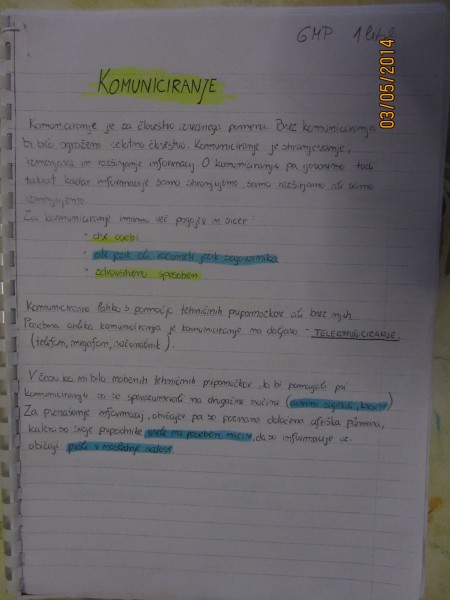 GMP 1 letnik
03/05/2014
KOMUNICIRANJE
Komuniciranje je za človeštvo izrednega pomena. Brez komuniciranja
bi bilo ogroženo celotno človeštvo. Komuniciranje je shranjevanje,
izmenjava in razširjanje informacij. O komuniciranju pa govorimo tudi
takrat, kadar informacije samo shranjujemo, samo razširjamo ali samo
izmenjujemo.
Za komuniciranje imamo več pogojev in sicer:
- dve osebi
- isti jezik ali razumeti jezik sogovornika
- zdravstveno sposoben
Komuniciramo lahko s pomočjo tehničnih pripomočkov ali brez njih.
Posebna oblika komuniciranja je komuniciranje na daljavo - TELEKOMUNICIRANJE.
(telefon, megafon, računalnik).
V času, ko ni bilo nobenih tehničnih pripomočkov, ki bi pomagali pri
komuniciranju so se sporazumevali na drugačne načine (
Za prenašanje informacij, običajev pa so poznana določena afriška plemena,
katera so svoje pripadnike učili na poseben način, da so informacije in
običaji prešli v naslednje rodove.